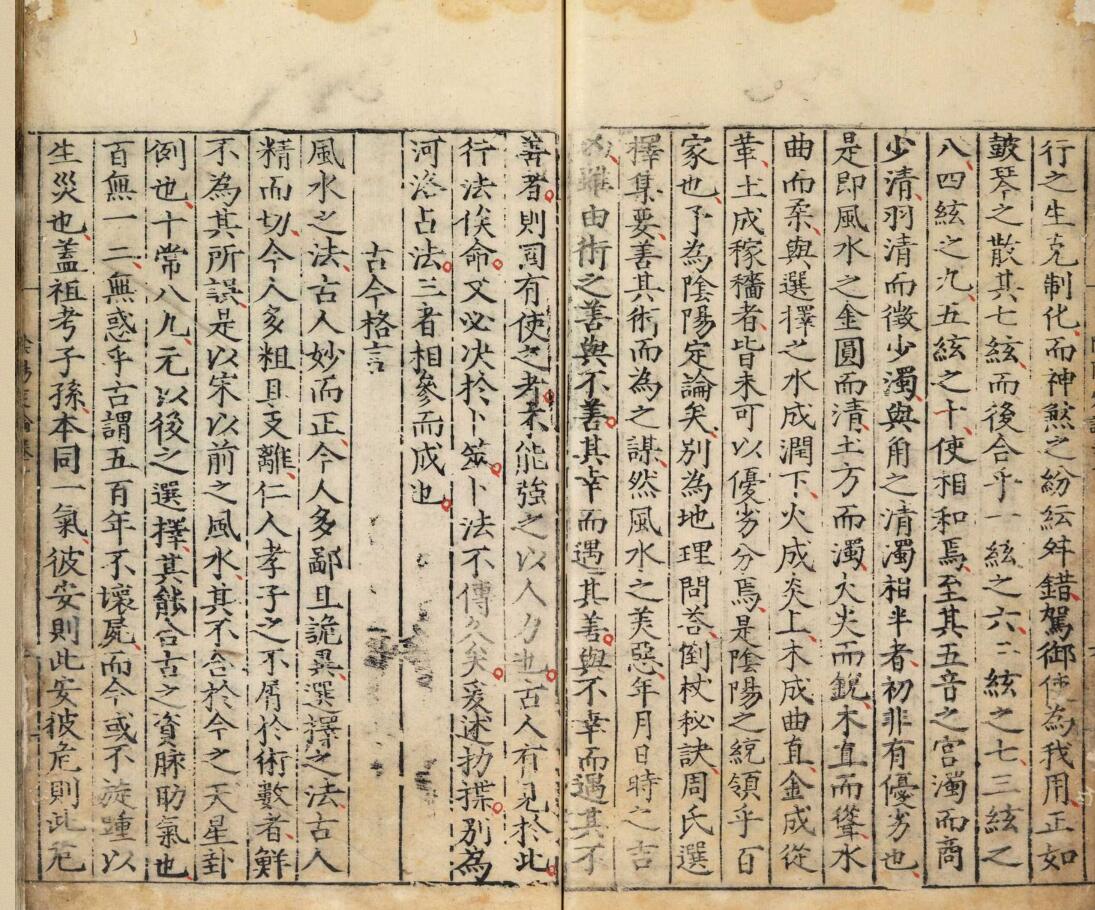 行之生克制化而神煞之紛紜舛錯駕御使為我用正如
鼓琴之散其七絃而後合乎一絃之六二絃之七三絃之
八四絃之九五絃之十使相和焉至其五音之宮濁而商
少清羽清而徵少濁與角之清濁相半者初非有優劣也
是即風水之金圓而清土方而濁火尖而銳木直而聳水
曲而柔與選擇之水成潤下火成炎上木成曲直金成從
革土成稼穡者皆未可以優劣分焉是陰陽之統領乎百
家也予為陰陽定論矣別為地理問荅倒杖秘訣周氏選
擇集要善其術而為之謀然風水之美惡年月日時之吉
凶雖由術之善與不善其幸而遇其善與不幸而遇其不
善者則固有使之者未能強之以人力也古人有見於此
行法俟命又必决於卜筮卜法不傳久矣爰述扐揲別為
河洛占法三者相參而成也
古今格言
風水之法古人妙而正今人多鄙且詭異選擇之法古人
精而切今人多粗且支離仁人孝子之不屑於術數者鮮
不為其所誤是以宋以前之風水其不合於今之天星卦
例也十常八九元以後之選擇其能合古之資脉助氣也
百無一二無惑乎古謂五百年不壞屍而今或不旋踵以
生災也蓋祖考子孫本同一氣彼安則此安彼危則此危